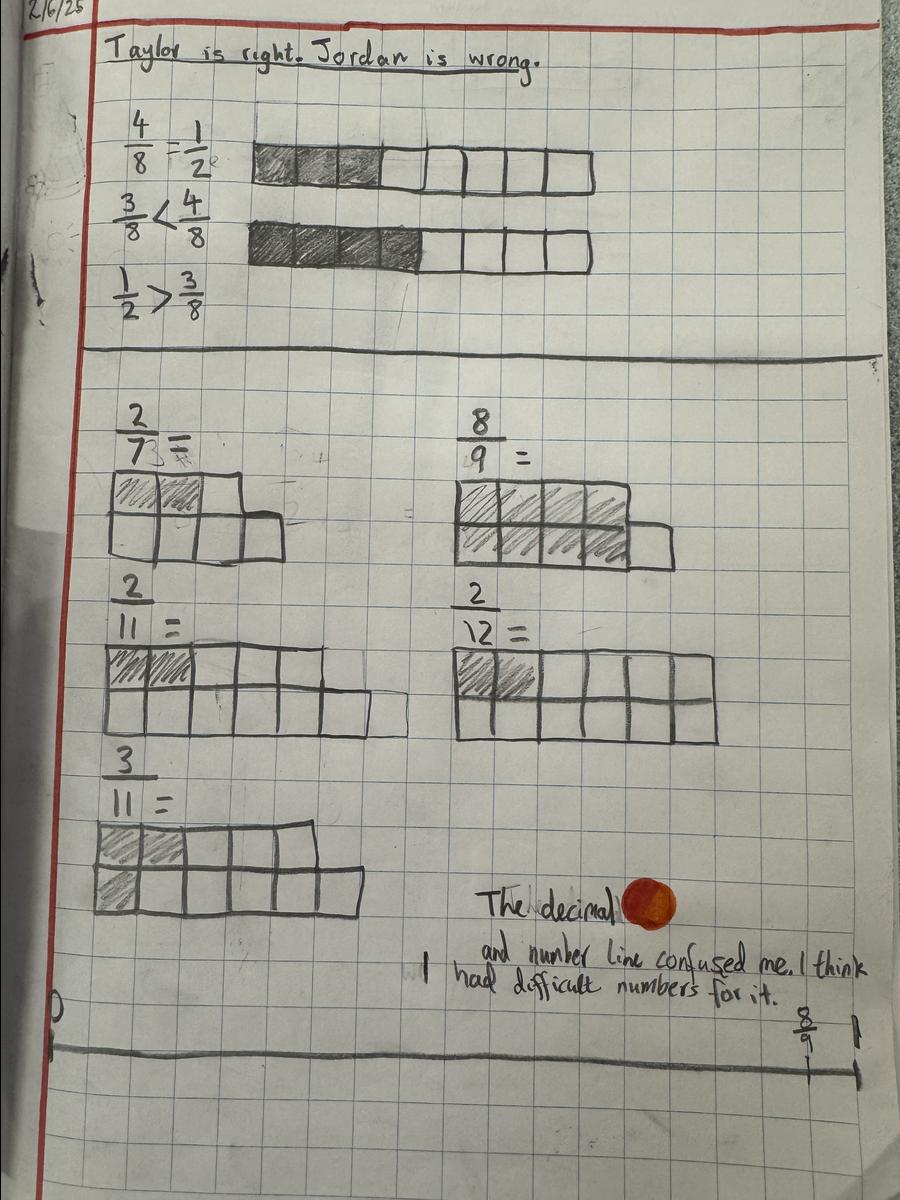 2/6/25
Taylor is right. Jordan is wrong.
4/8 = 1/2
3/8 < 4/8
1/2 > 3/8
2/7 =
8/9 =
2/11 =
2/12 =
3/11 =
The decimal
and number line confused me. I think
I had difficult numbers for it.
0
8/9
1